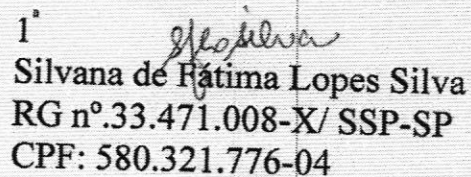 1ª
Silvana de Fátima Lopes Silva
RG nº.33.471.008-X/ SSP-SP
CPF: 580.321.776-04